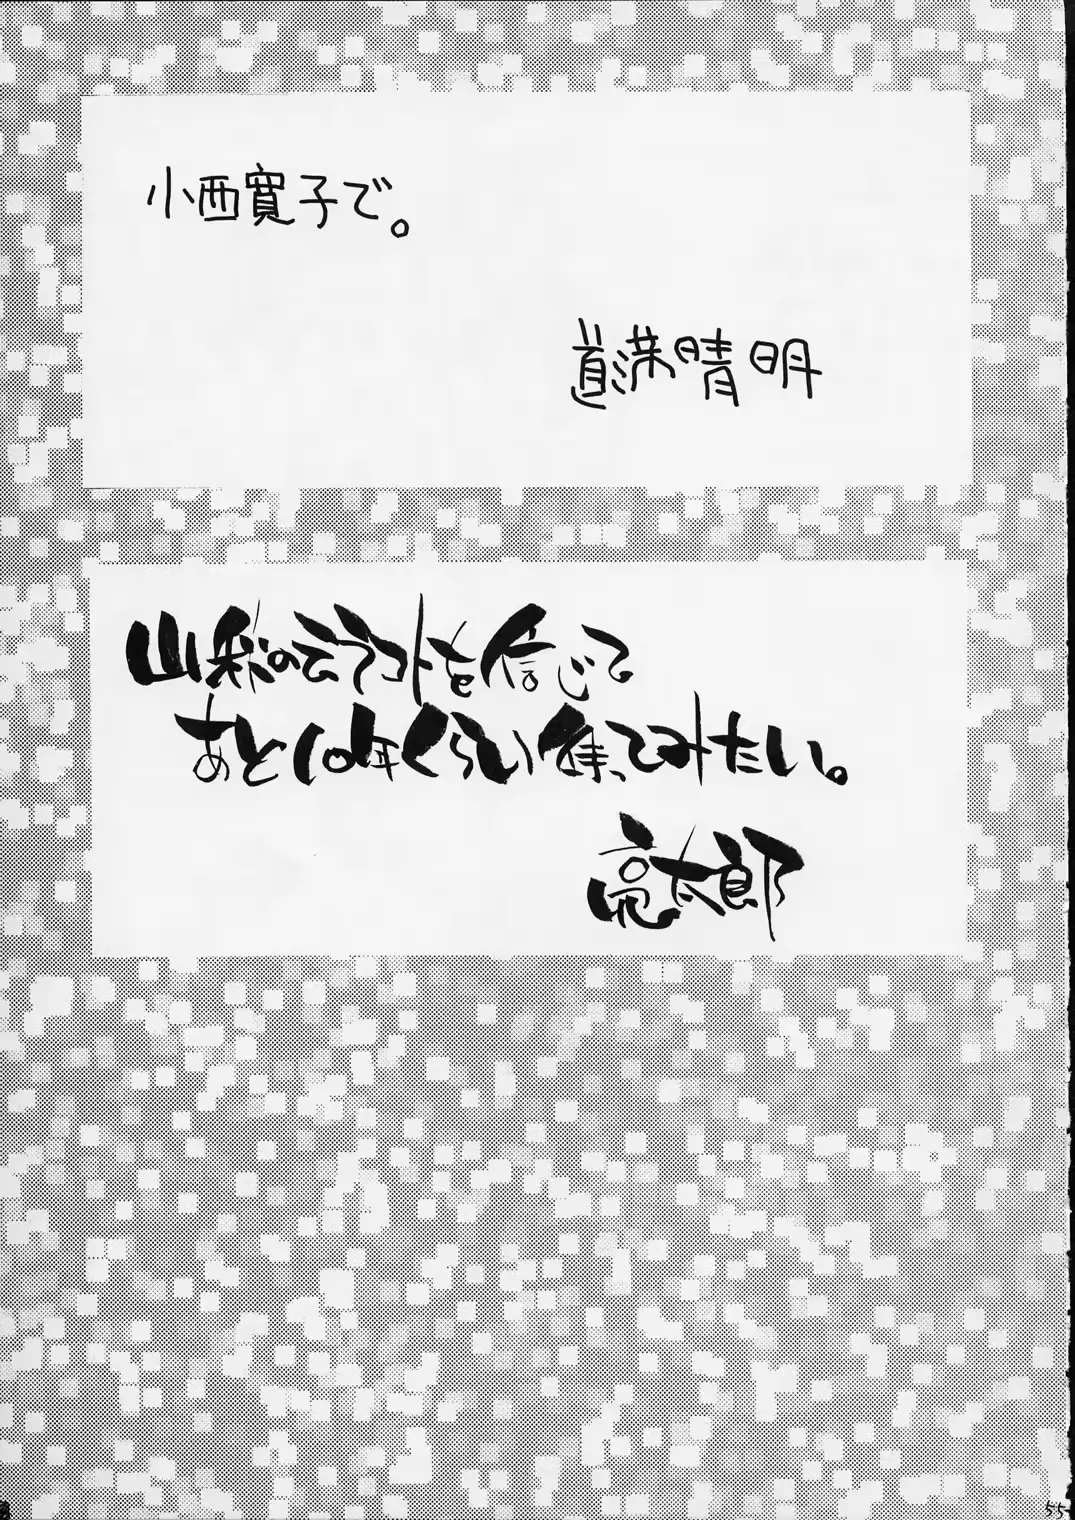 小西寛子で。
道満晴明
山梨のデラコトを信じて
あと10年くらい待ってみたい。
亮太郎
55